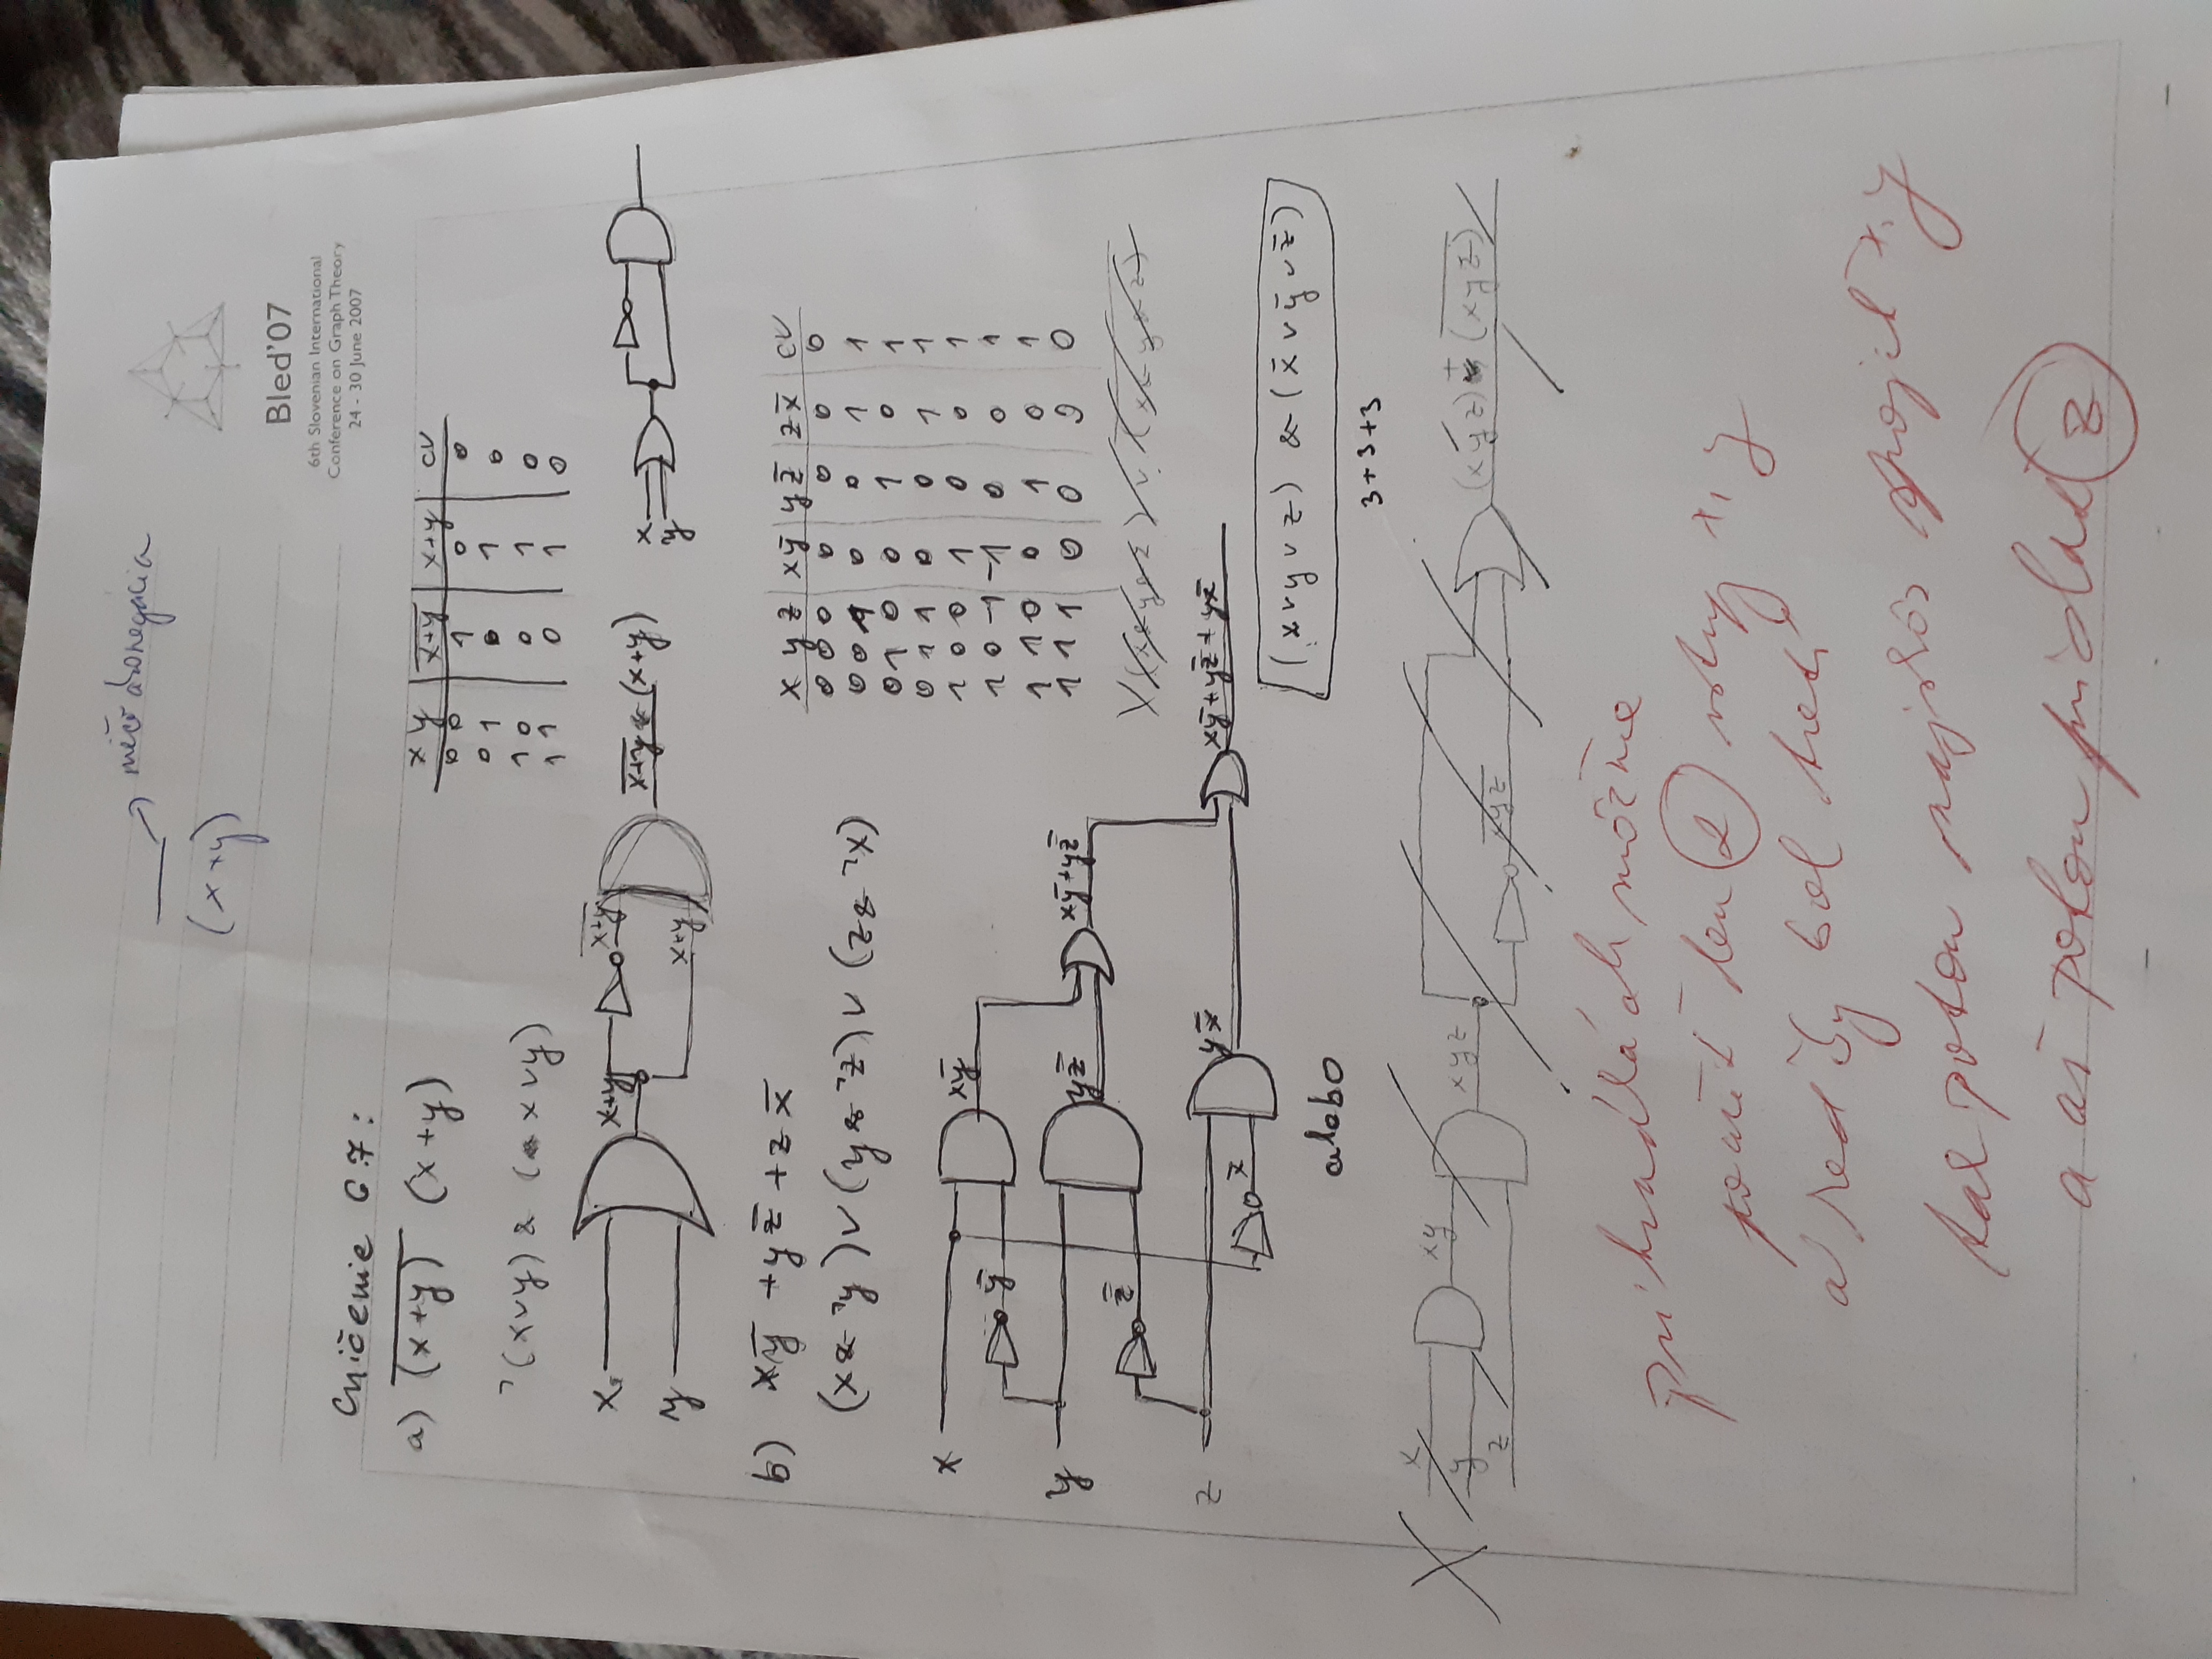 (x+y)
Bled'07
6th Slovenian International
Conference on Graph Theory
24 - 30 June 2007
Cvičenie 6.7:
a) \overline{(x+y)} (x+y)
¬(x∨y) & (x∨y)
x y | \overline{x+y} | x+y | CV
0 0 | 1 | 0 | 0
0 1 | 0 | 1 | 0
1 0 | 0 | 1 | 0
1 1 | 0 | 1 | 0
x
y
x+y
\overline{x+y}
x+y
\overline{x+y} & (x+y)
x
y
b) xȳ + yz̄ + zx̄
(x & ¬y) ∨ (y & ¬z) ∨ (z & ¬x)
x y z | xȳ | yz̄ | zx̄ | CV
0 0 0 | 0 | 0 | 0 | 0
0 0 1 | 0 | 0 | 1 | 1
0 1 0 | 0 | 1 | 0 | 1
0 1 1 | 0 | 0 | 1 | 1
1 0 0 | 1 | 0 | 0 | 1
1 0 1 | 1 | 0 | 0 | 1
1 1 0 | 0 | 1 | 0 | 1
1 1 1 | 0 | 0 | 0 | 0
x
ȳ
xȳ
y
z̄
yz̄
xȳ+yz̄
z
x̄
yx̄
xȳ+yz̄+yx̄
(x∨y∨z) & (x̄∨ȳ∨z̄)
3+3+3
alebo
x
y
z
xy
xyz
\overline{xyz}
(xyz) + \overline{(xyz)}
pri hradlách môžme
použiť len 2 vstupy x, y
a keď by bol tretí
tak potom najskôr spojiť x, y
a až potom pridať z